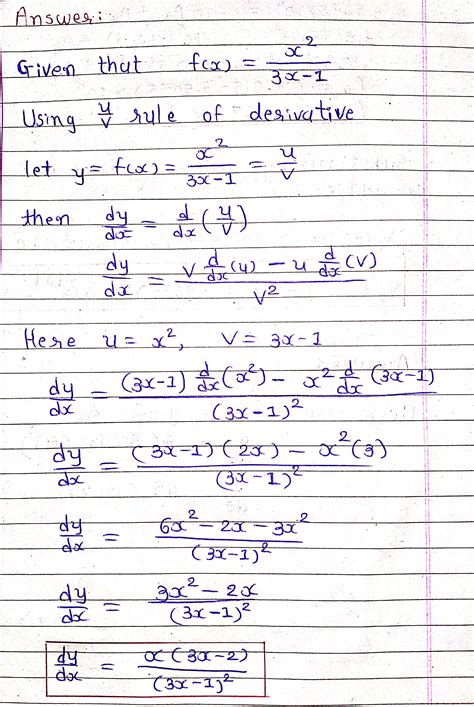 Answer:
Given that f(x) = x²/(3x-1)
Using u/v rule of derivative
let y = f(x) = x²/(3x-1) = u/v
then dy/dx = d/dx (u/v)
dy/dx = (v d/dx (u) - u d/dx (v))/v²
Here u = x², v = 3x-1
dy/dx = ((3x-1) d/dx (x²) - x² d/dx (3x-1))/(3x-1)²
dy/dx = ((3x-1)(2x) - x²(3))/(3x-1)²
dy/dx = (6x² - 2x - 3x²)/(3x-1)²
dy/dx = (3x² - 2x)/(3x-1)²
dy/dx = x(3x-2)/(3x-1)²